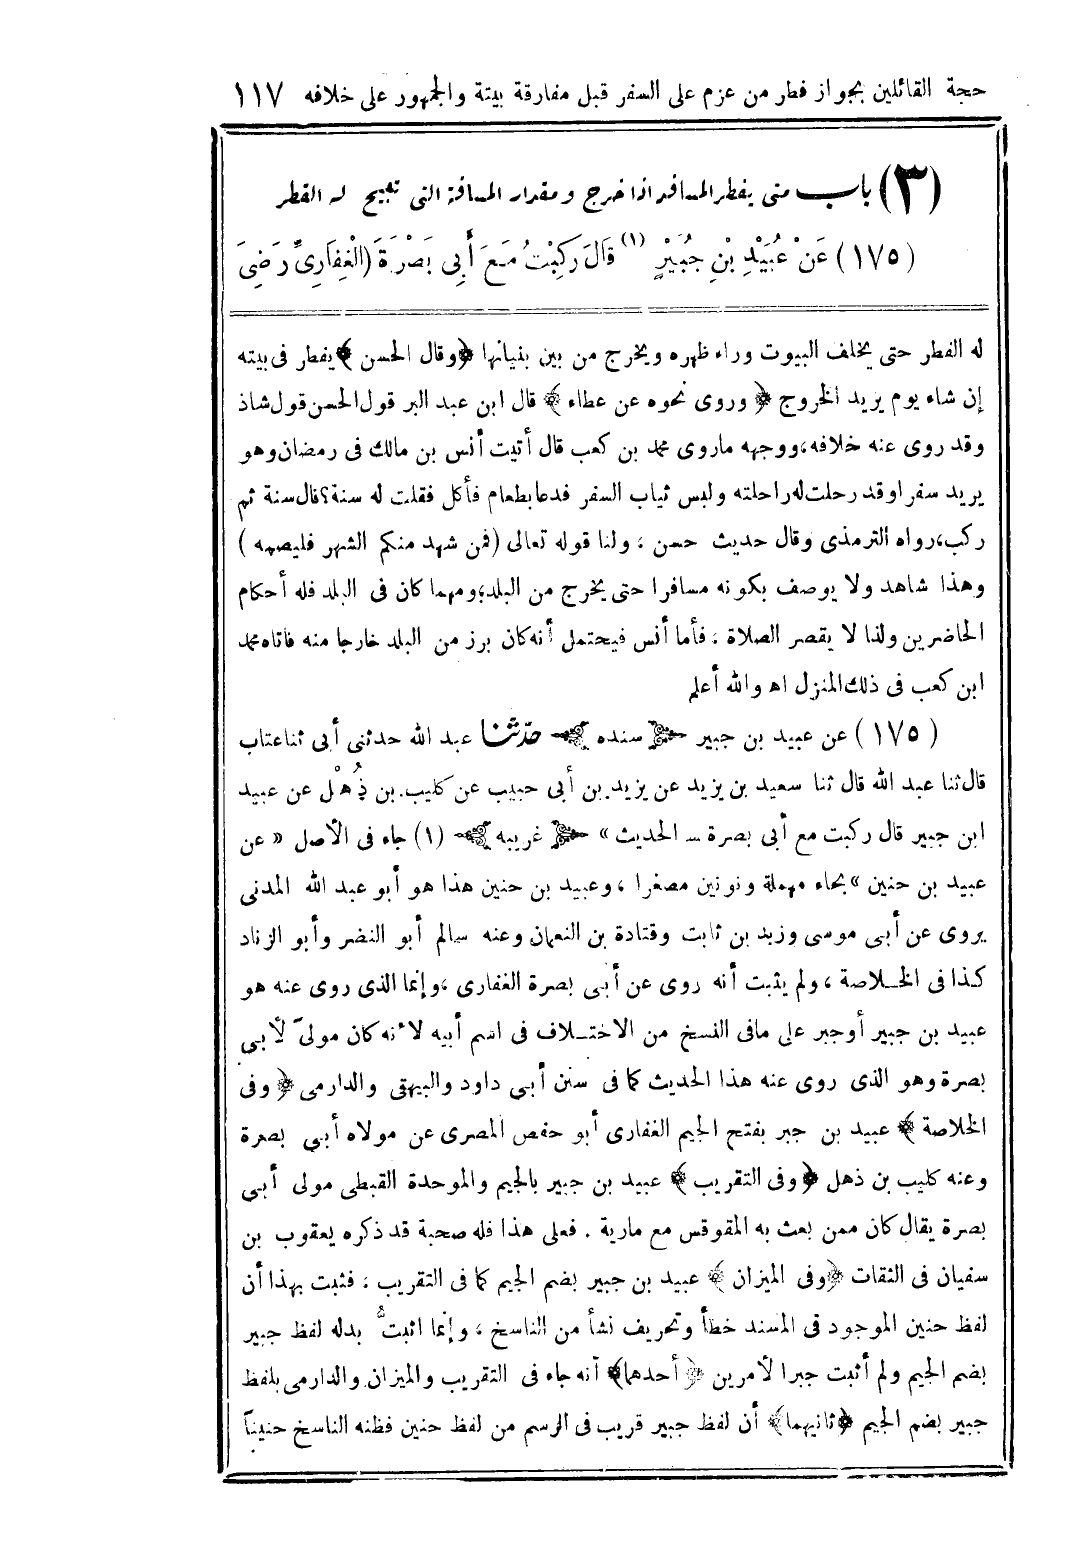 حجة القائلين بجواز فطر من عزم على السفر قبل مفارقة بيتة والجمهور على خلافه ١١٧
(٣) باب متى يفطر المسافر اذا خرج ومقدار المسافة التى تبيح له الفطر
(١٧٥) عَنْ عُبَيْدِ بْنِ جُبَيْرٍ (١) قَالَ رَكِبْتُ مَعَ أَبِى بَصْرَةَ (الْغِفَارِىِّ رَضِىَ
له الفطر حتى يخلف البيوت وراء ظهره ويخرج من بين بنيانها ﴿وقال الحسن﴾ يفطر فى بيته
إن شاء يوم يريد الخروج ﴿وروى نحوه عن عطاء﴾ قال ابن عبد البر قول الحسن قول شاذ
وقد روى عنه خلافه، ووجهه ماروى محمد بن كعب قال أتيت أنس بن مالك فى رمضان وهو
يريد سفرا وقد رحلت له راحلته ولبس ثياب السفر فدعا بطعام فأكل فقلت له سنة؟ قال سنة ثم
ركب، رواه الترمذى وقال حديث حسن ، ولنا قوله تعالى (فمن شهد منكم الشهر فليصمه )
وهذا شاهد ولا يوصف بكونه مسافرا حتى يخرج من البلد؛ ومهما كان فى البلد فله أحكام
الحاضرين ولذا لا يقصر الصلاة ، فأما أنس فيحتمل أنه كان برز من البلد خارجا منه فاتاه محمد
ابن كعب فى ذلك المنزل اه والله أعلم
(١٧٥) عن عبيد بن جبير ﴿سنده﴾ حدّثنا عبد الله حدثنى أبى ثنا عتاب
قال ثنا عبد الله قال ثنا سعيد بن يزيد عن يزيد بن أبى حبيب عن كليب بن ذُهْل عن عبيد
ابن جبير قال ركبت مع أبى بصرة ــ الحديث» ﴿غريبه﴾ (١) جاء فى الأصل « عن
عبيد بن حنين » بحاء مهملة ونونين مصغرا ، وعبيد بن حنين هذا هو أبو عبد الله المدنى
يروى عن أبى موسى وزيد بن ثابت وقتادة بن النعمان وعنه سالم أبو النضر وأبو الزناد
كذا فى الخلاصة ، ولم يثبت أنه روى عن أبى بصرة الغفارى ، وإنما الذى روى عنه هو
عبيد بن جبير أو جبر على مافى النسخ من الاختلاف فى اسم أبيه لأنه كان مولىً لأبى
بصرة وهو الذى روى عنه هذا الحديث كما فى سنن أبى داود والبيهقى والدارمى ﴿وفى
الخلاصة﴾ عبيد بن جبر بفتح الجيم الغفارى أبو حفص المصرى عن مولاه أبى بصرة
وعنه كليب بن ذهل ﴿وفى التقريب﴾ عبيد بن جبير بالجيم والموحدة القبطى مولى أبى
بصرة يقال كان ممن بعث به المقوقس مع مارية . فعلى هذا فله صحبة قد ذكره يعقوب بن
سفيان فى الثقات ﴿وفى الميزان﴾ عبيد بن جبير بضم الجيم كما فى التقريب ، فثبت بهذا أن
لفظ حنين الموجود فى المسند خطأ وتحريف نشأ من الناسخ ، وإنما اثبتُّ بدله لفظ جبير
بضم الجيم ولم أثبت جبرا لأمرين ﴿أحدهما﴾ أنه جاء فى التقريب والميزان والدارمى بلفظ
جبير بضم الجيم ﴿ثانيهما﴾ أن لفظ جبير قريب فى الرسم من لفظ حنين فظنه الناسخ حنيناً